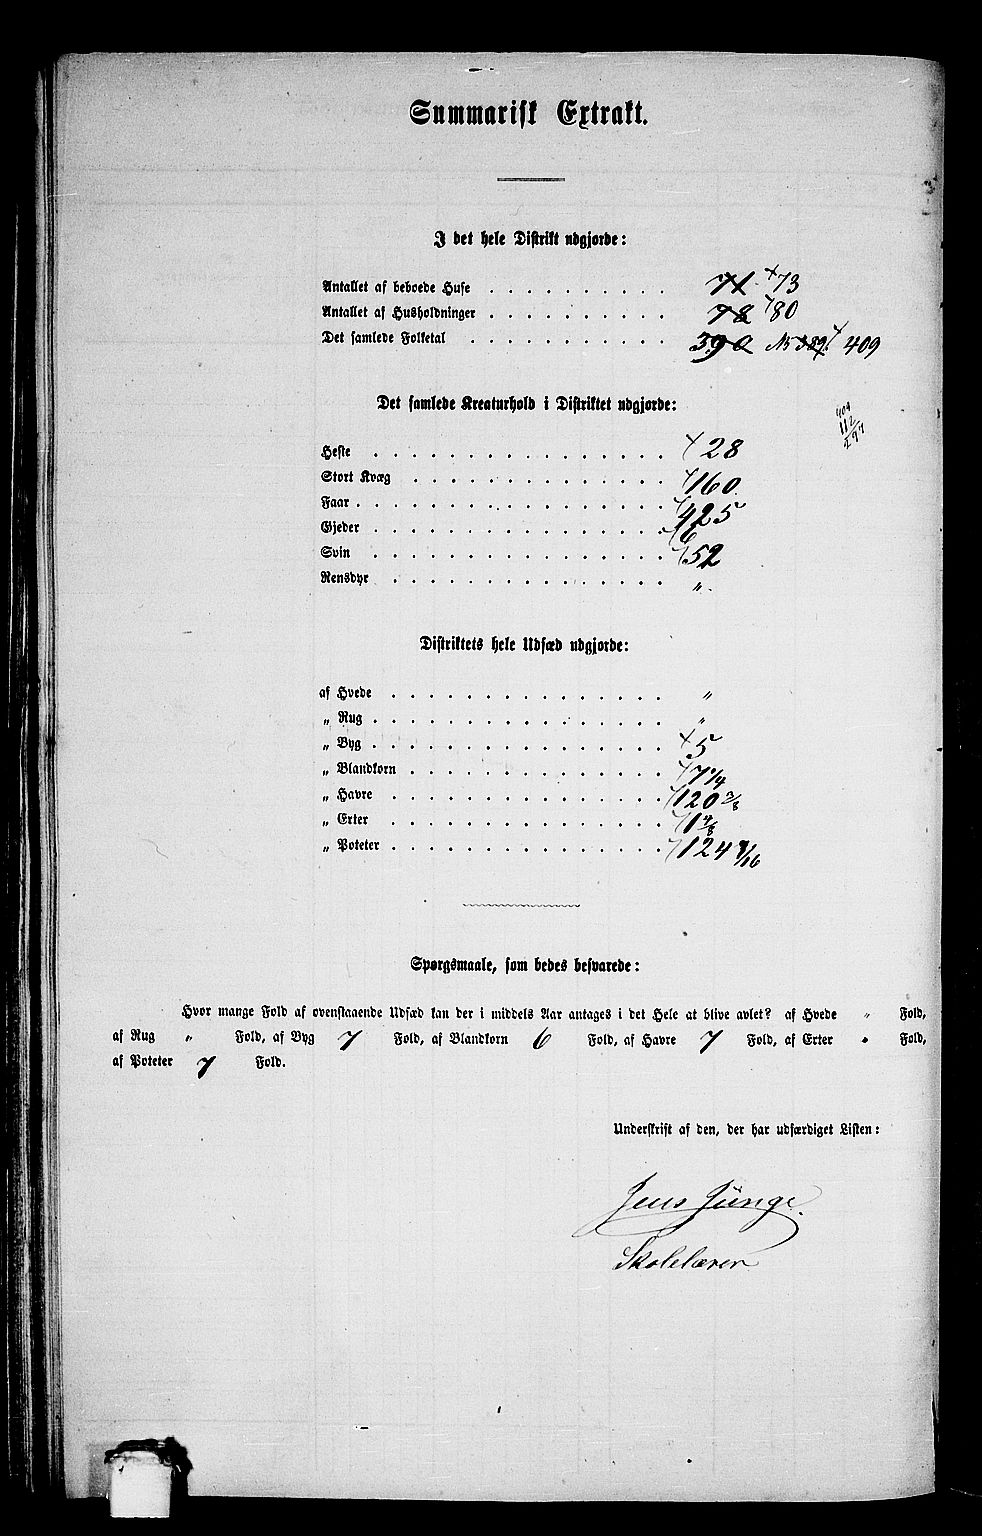 Summarisk Extrakt.
I det hele Distrikt udgjorde:
Antallet af beboede Huse 71 73
Antallet af Husholdninger 78 80
Det samlede Folketal 390 No 389. 409
Det samlede Kreaturhold i Distriktet udgjorde:
409
112
297
Heste 28
Stort Kvæg 160
Faar 425
Gjeder 6
Svin 52
Rensdyr „
Distriktets hele Udsæd udgjorde:
af Hvede „
„ Rug „
„ Byg 5
„ Blandkorn 7 1/4
„ Havre 120 3/8
„ Erter
„ Poteter
Spørgsmaale, som bedes besvarede:
Hvor mange Fold af ovenstaaende Udsæd kan der i middels Aar antages i det Hele at blive avlet? af Hvede „ Fold,
af Rug „ Fold, af Byg 7 Fold, af Blandkorn 6 Fold, af Havre 7 Fold, af Erter „ Fold,
af Poteter 7 Fold.
Underskrift af den, der har udfærdiget Listen:
Jens Junge.
Skolelærer